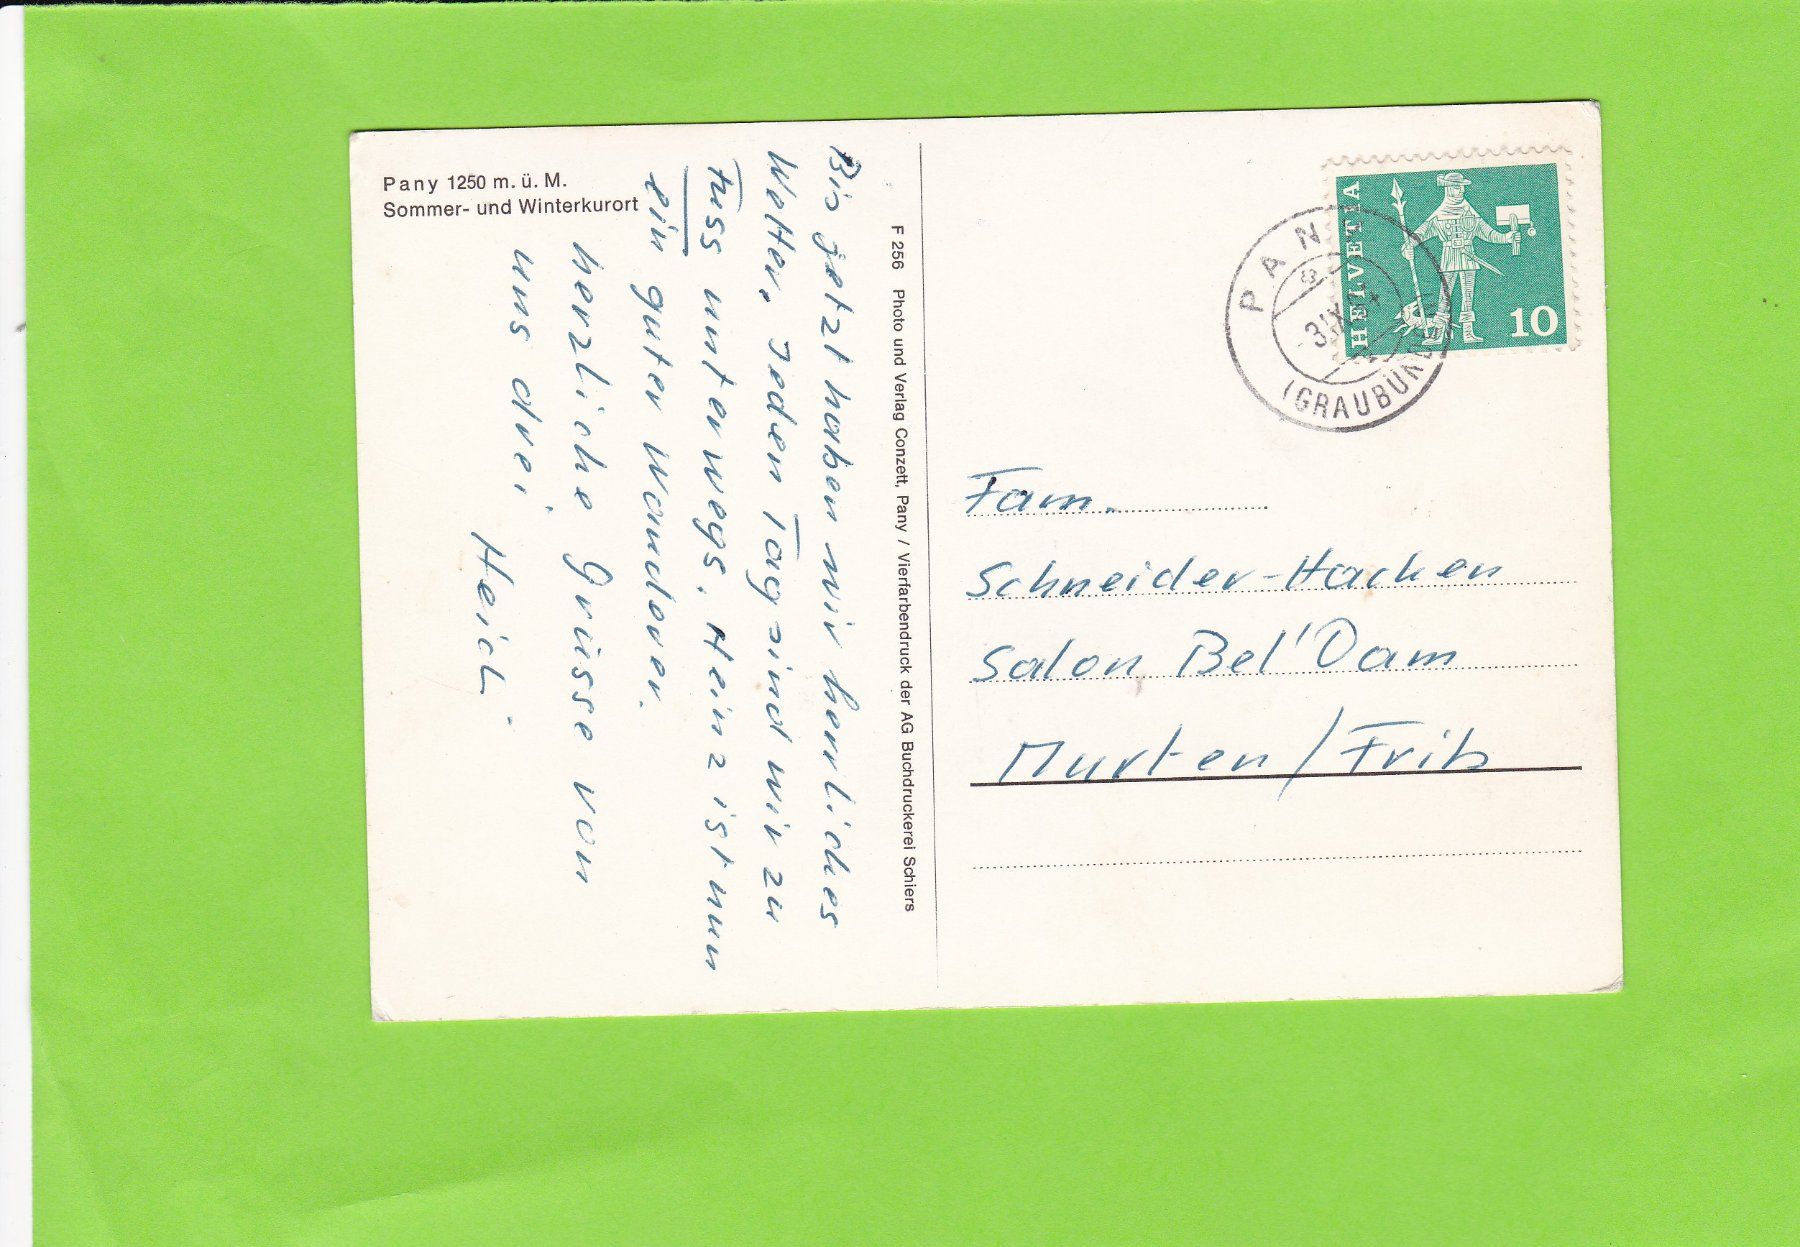 Pany 1250 m. ü. M.
Sommer- und Winterkurort
Bis jetzt haben wir herrliches
Wetter. Jeden Tag sind wir zu
Fuss unterwegs. Heinz ist nun
ein guter Wanderer.
herzliche Grüsse von
uns drei
F 256 Photo und Verlag Conzett, Pany / Vierfarbendruck der AG Buchdruckerei Schiers
HELVETIA
10
PANY
(GRAUBÜNDEN)
Fam.
Schneider-Hacken
Salon Bel'Dam
Murten / Frib